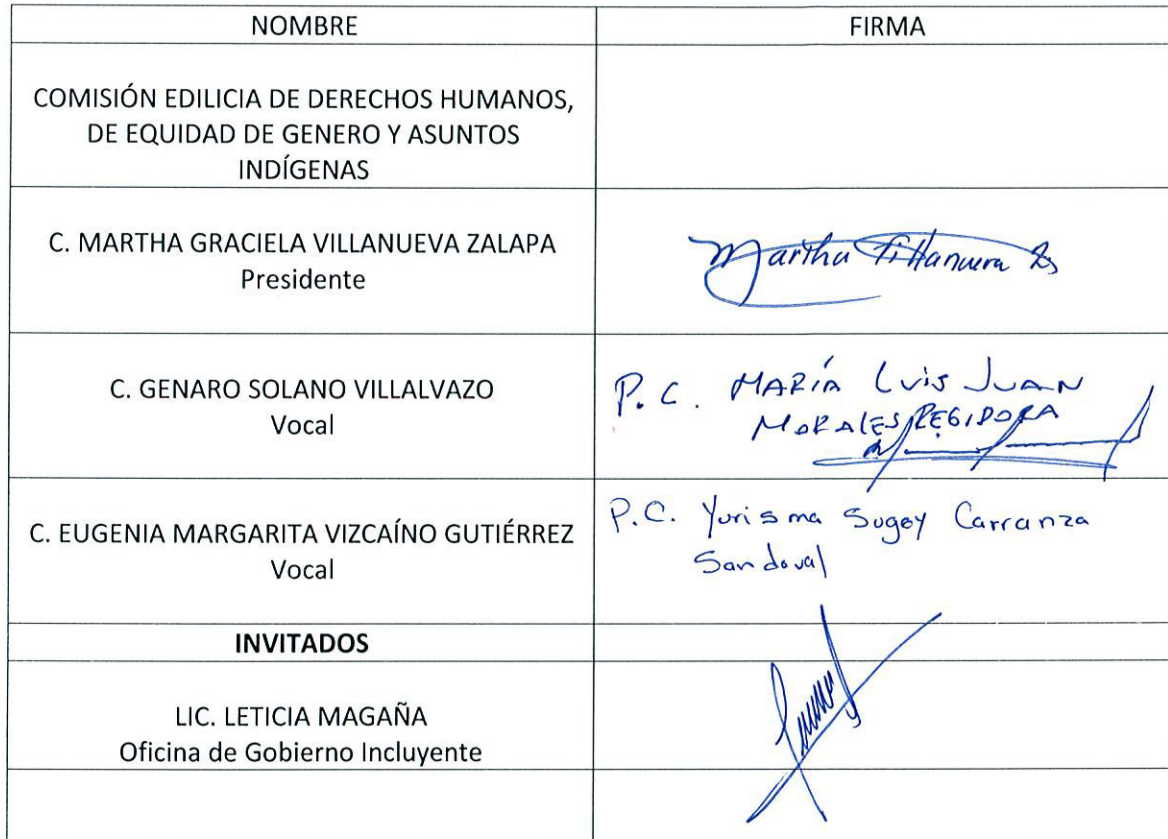 NOMBRE
FIRMA
COMISIÓN EDILICIA DE DERECHOS HUMANOS,
DE EQUIDAD DE GENERO Y ASUNTOS
INDÍGENAS
C. MARTHA GRACIELA VILLANUEVA ZALAPA
Presidente
Martha Villanueva Z
C. GENARO SOLANO VILLALVAZO
Vocal
P. C. MARÍA LUIS JUAN
MORALES REGIDORA
C. EUGENIA MARGARITA VIZCAÍNO GUTIÉRREZ
Vocal
P.C. Yurisma Sugey Carranza
Sandoval
INVITADOS
LIC. LETICIA MAGAÑA
Oficina de Gobierno Incluyente